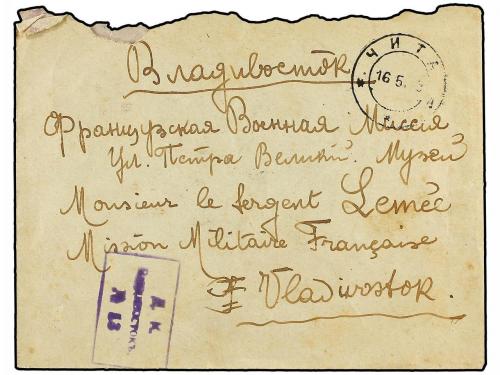 Владивосток
ЧИТА
16 5.
Французская Военная Миссия
Ул. Петра Великий. Музей
Monsieur le Sergent Lemée
Mission Militaire Française
Vladivostok.